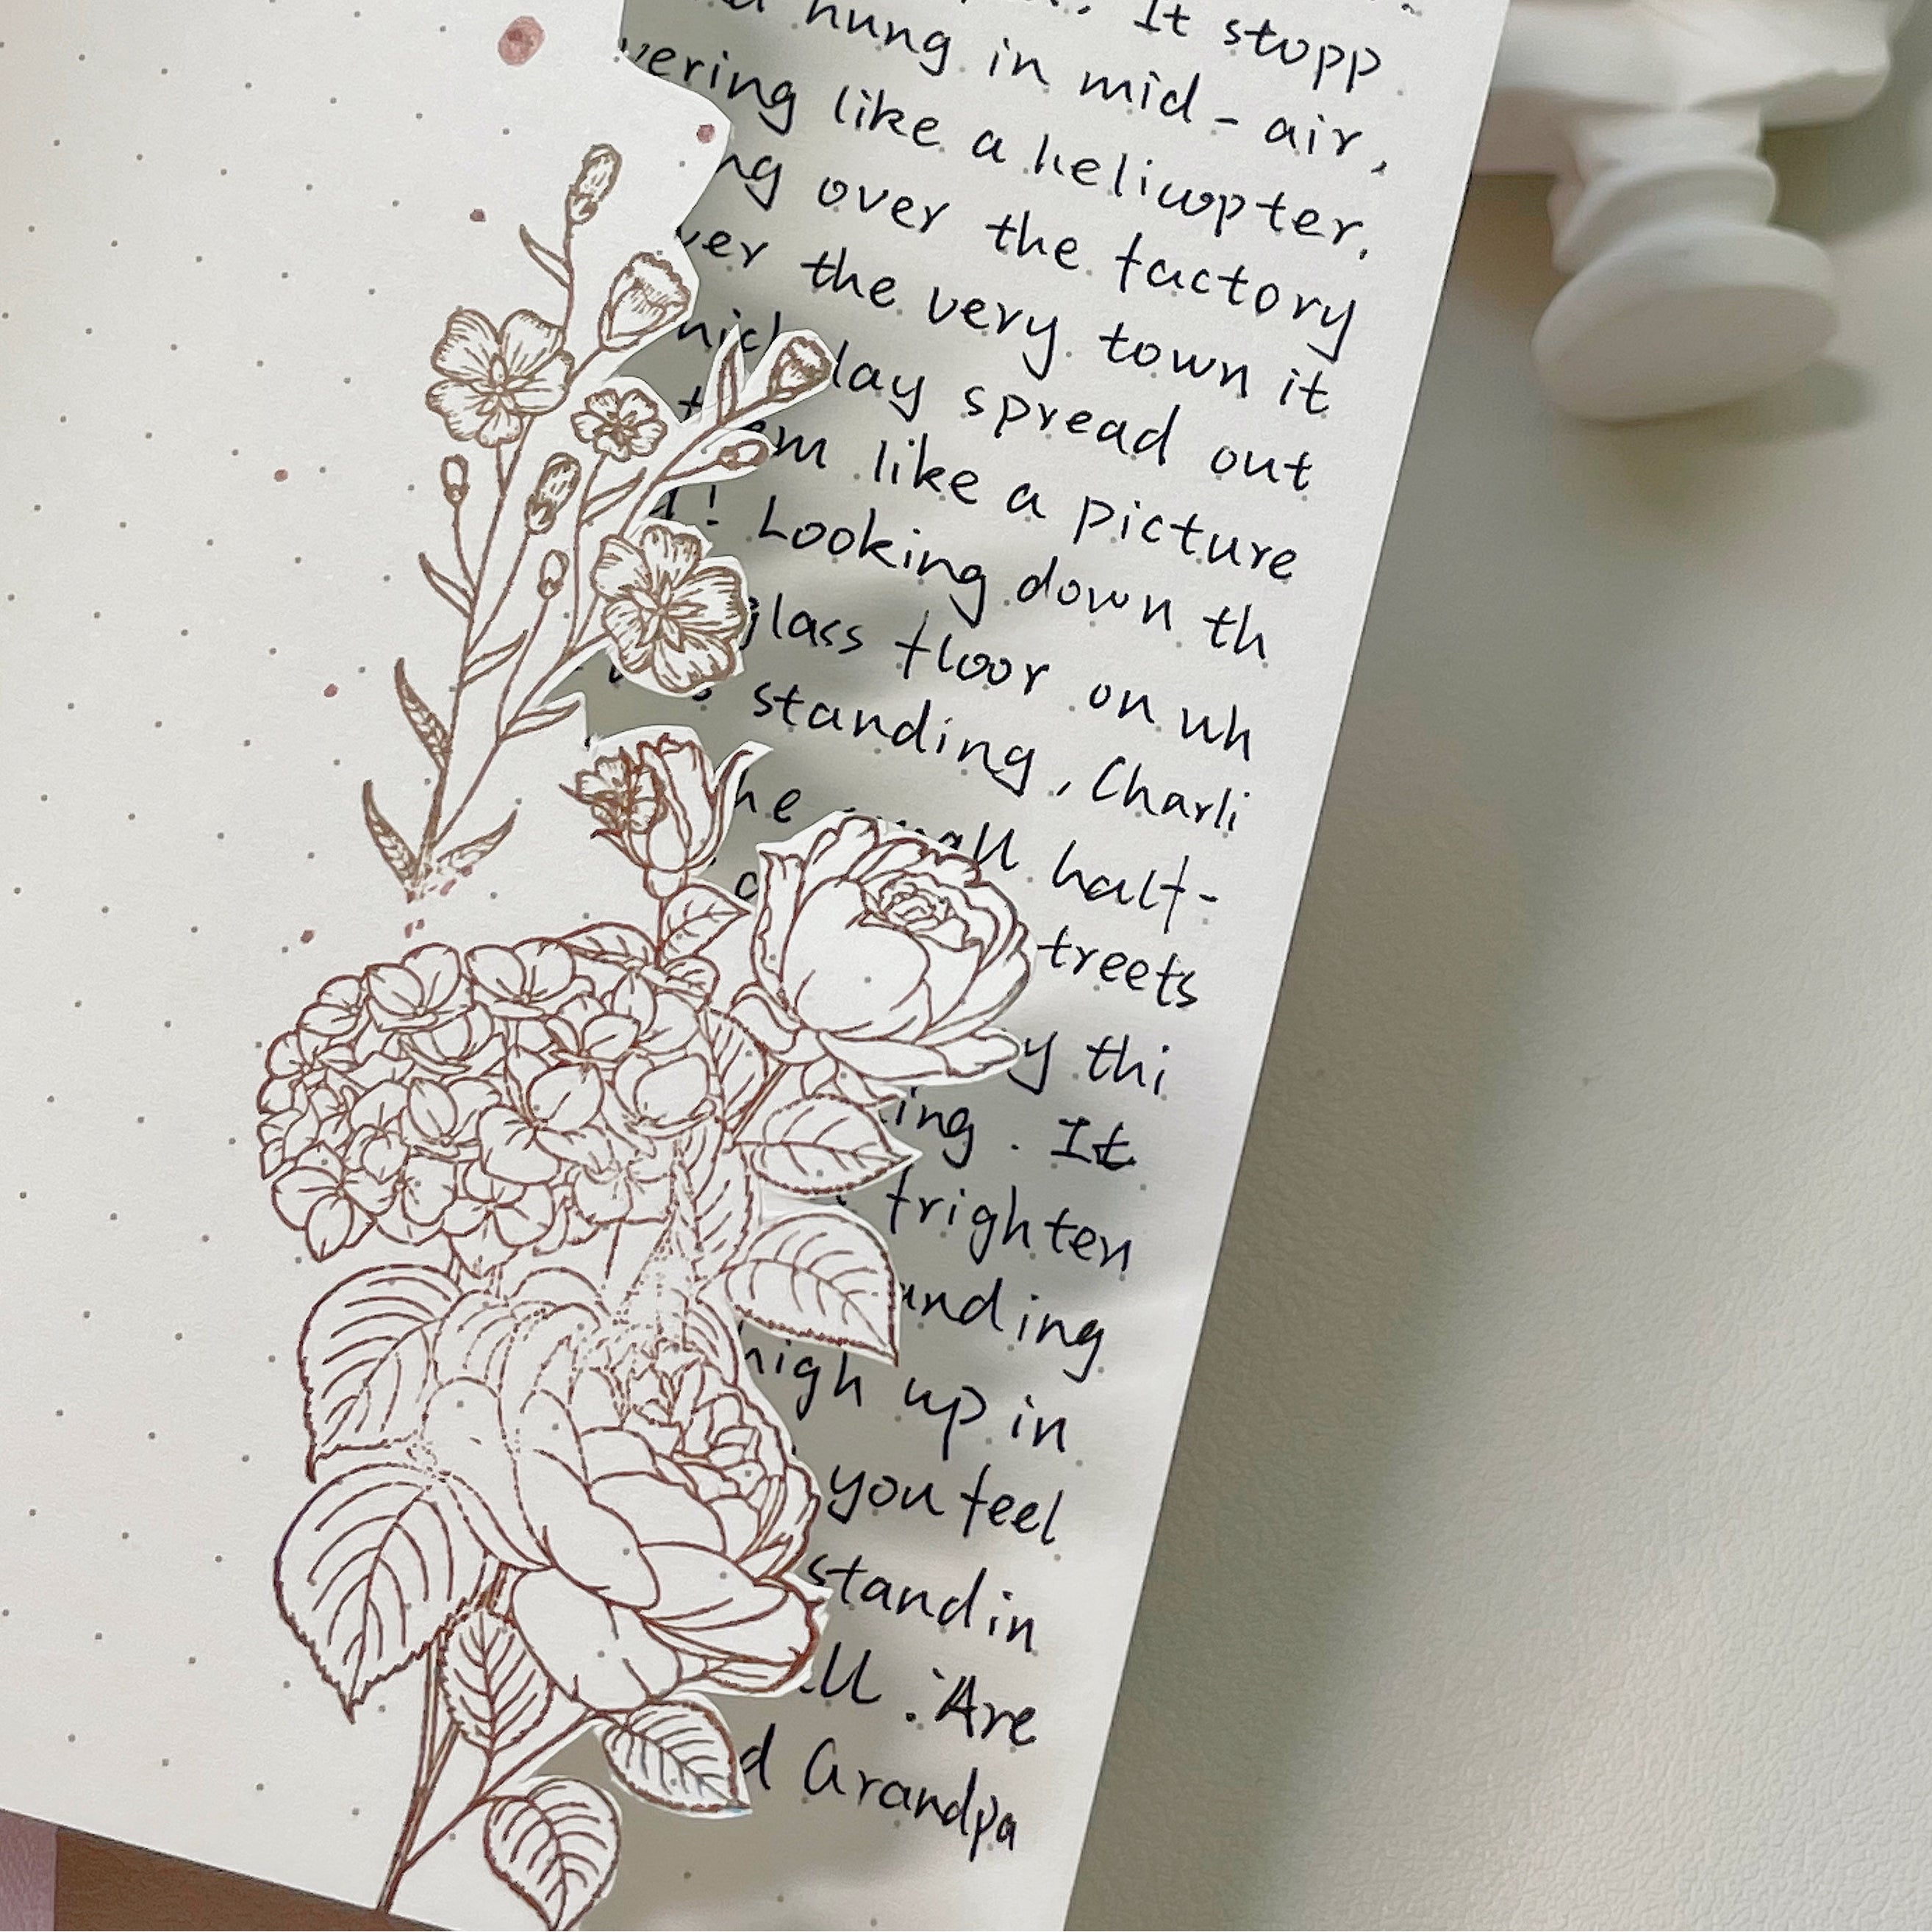 It stopp
hung in mid-air,
vering like a helicopter.
ng over the factory
ver the very town it
lay spread out
em like a picture
! Looking down th
glass floor on wh
standing, Charli
he small half-
treets
y thi
ing. It
frighten
anding
high up in
you feel
standin
ll. Are
d Grandpa